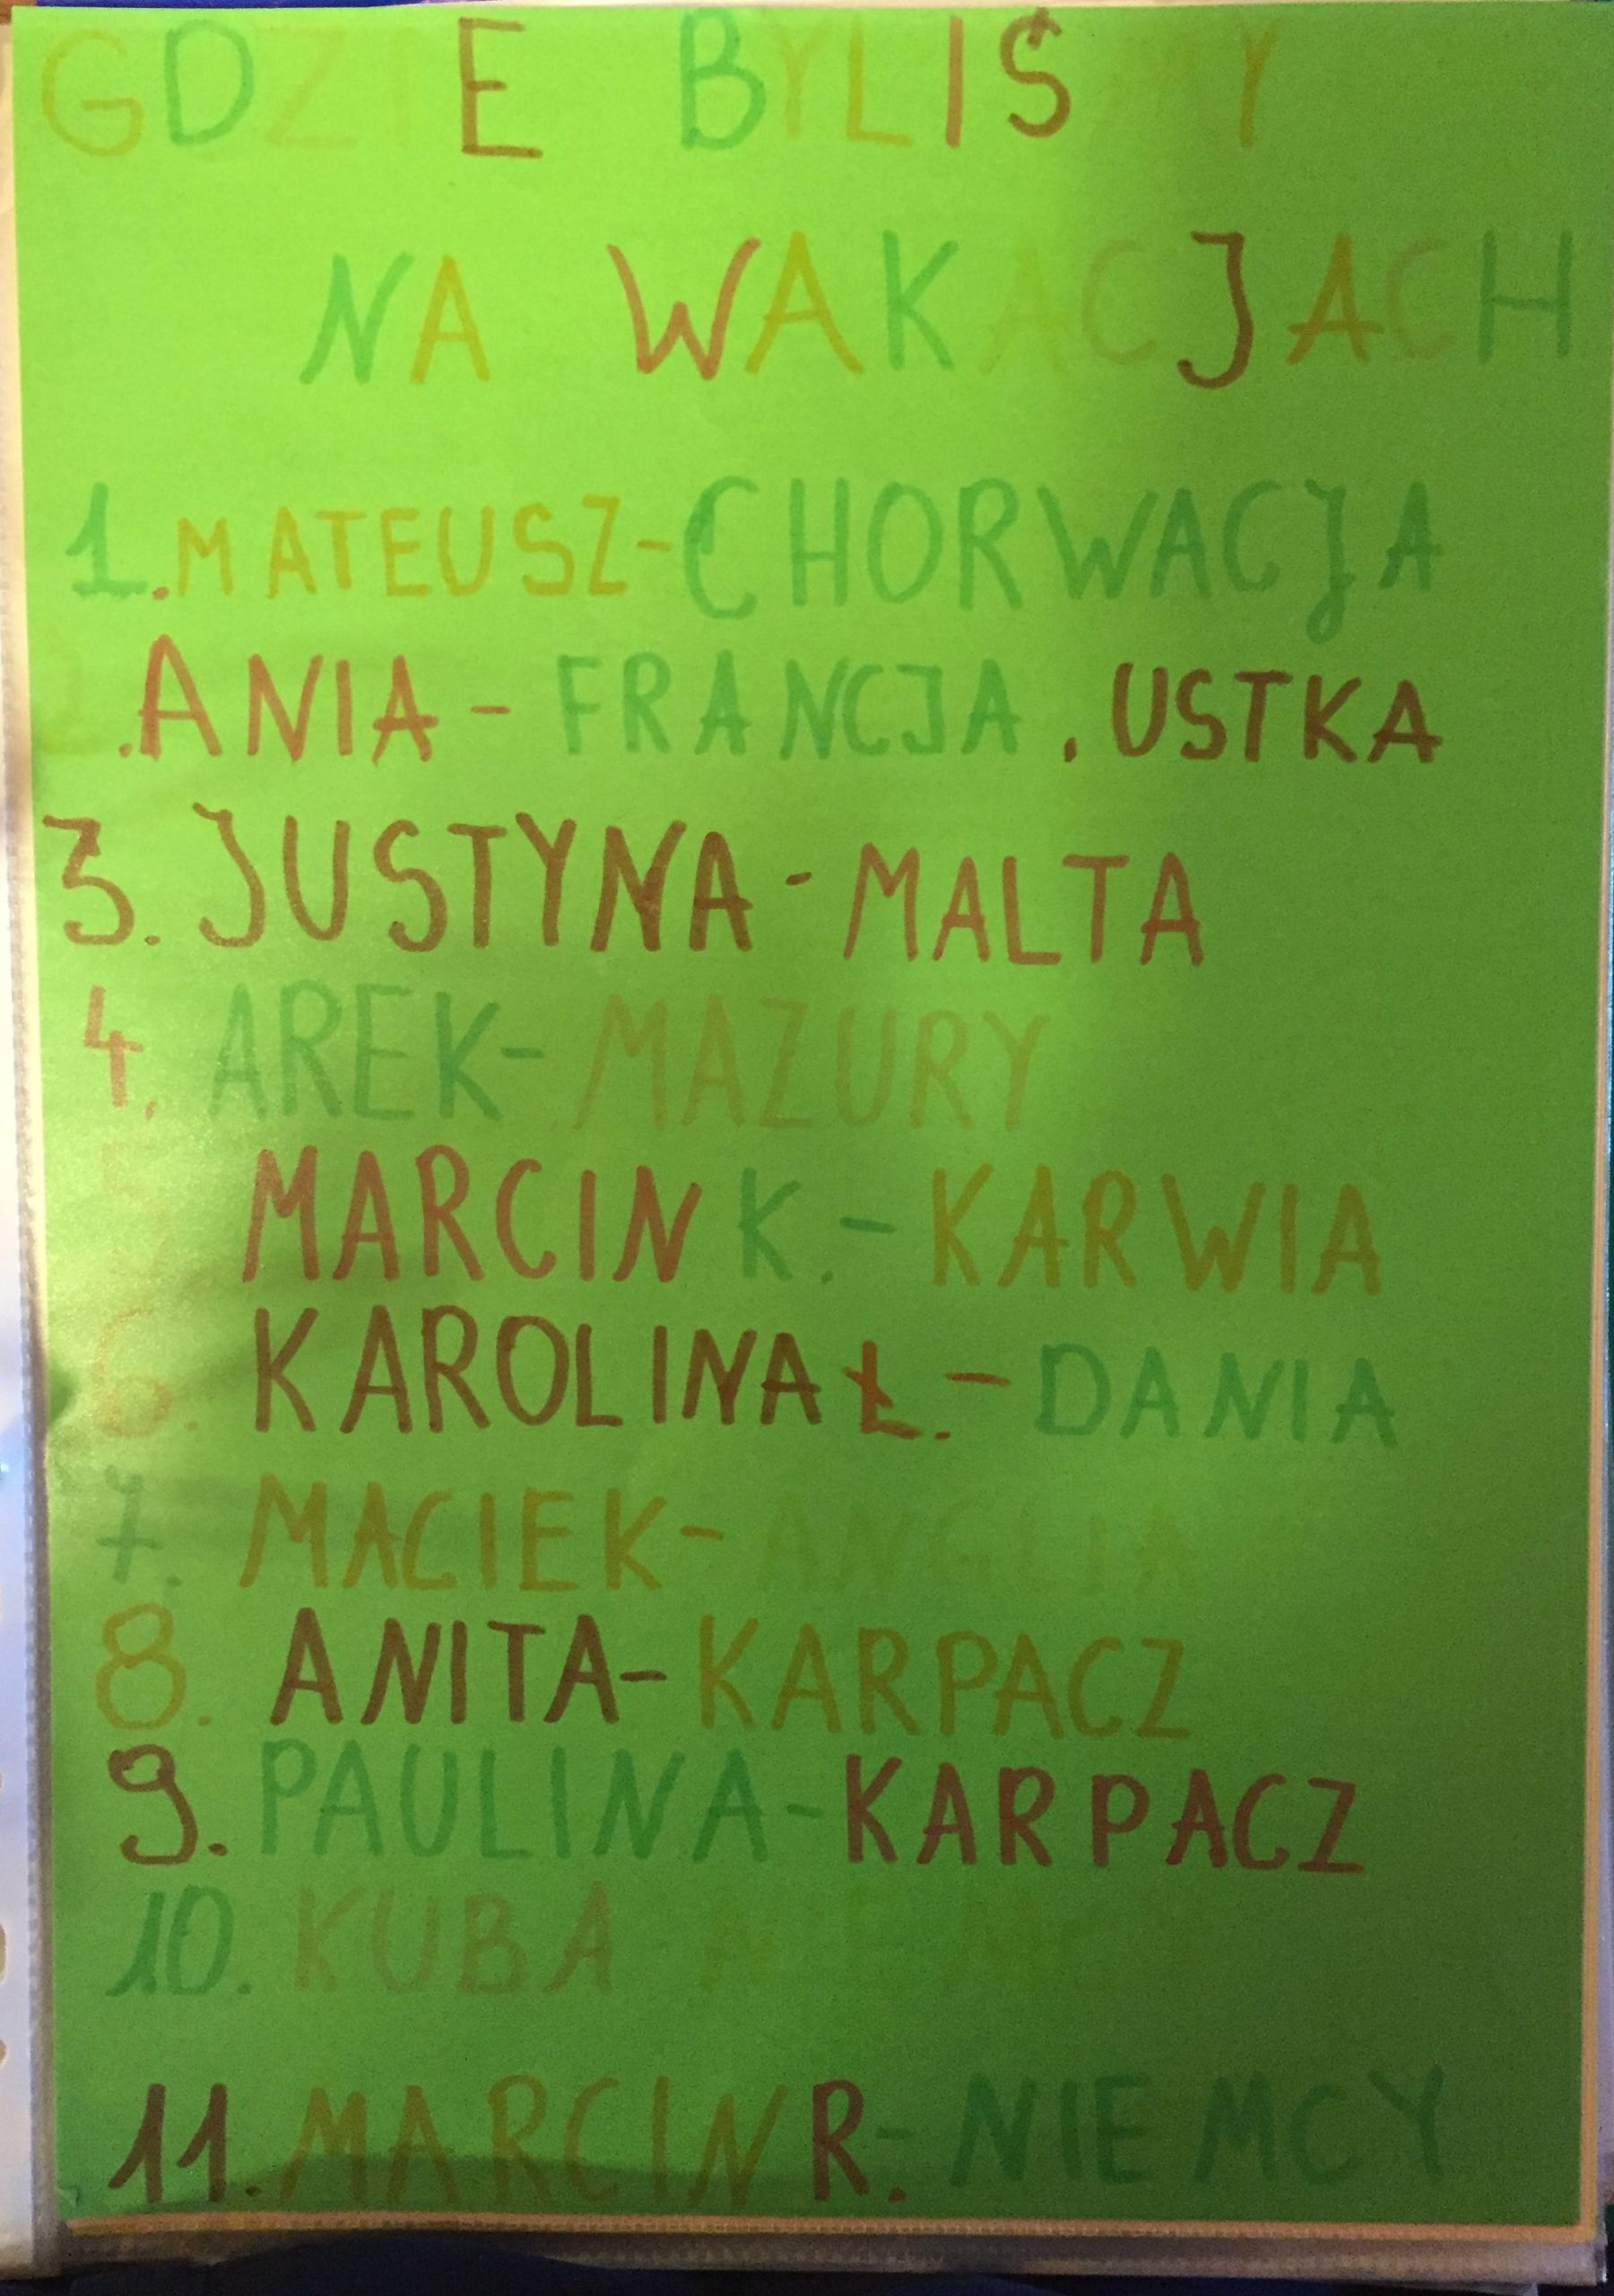 GDZIE BYLIŚMY
NA WAKACJACH
1. MATEUSZ - CHORWACJA
2. ANIA - FRANCJA, USTKA
3. JUSTYNA - MALTA
4. AREK - MAZURY
5. MARCIN K. - KARWIA
6. KAROLINA Ł. - DANIA
7. MACIEK - ANGLIA
8. ANITA - KARPACZ
9. PAULINA - KARPACZ
10. KUBA
11. MARCIN R. - NIEMCY